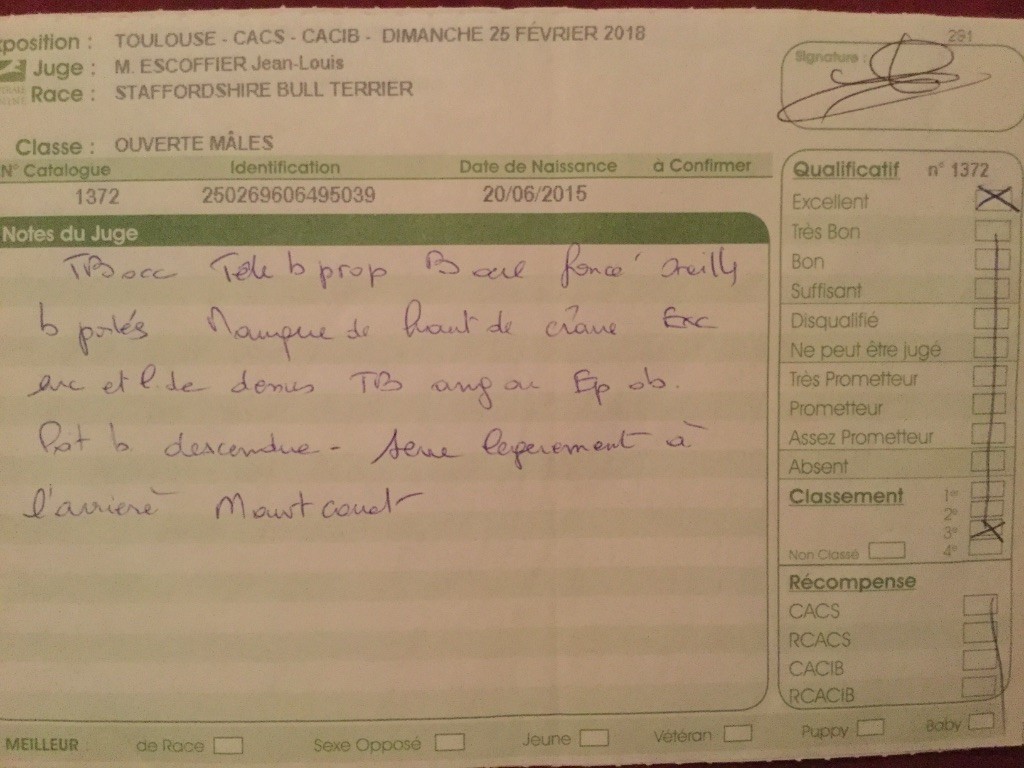 xposition : TOULOUSE - CACS - CACIB - DIMANCHE 25 FÉVRIER 2018
291
Juge : M. ESCOFFIER Jean-Louis
Signature :
Race : STAFFORDSHIRE BULL TERRIER
Classe : OUVERTE MÂLES
N° Catalogue Identification Date de Naissance à Confirmer
1372 250269606495039 20/06/2015
Notes du Juge
TB occ Tête b prop B oeil foncé oreilles
b portés Manque de haut de crâne Exc
enc et l. de dessus TB ang av Ep ob.
Poit b. descendue - serre légèrement à
l'arrière Mouvt
Qualificatif n° 1372
Excellent
Très Bon
Bon
Suffisant
Disqualifié
Ne peut être jugé
Très Prometteur
Prometteur
Assez Prometteur
Absent
Classement 1er
2e
3e
Non Classé 4e
Récompense
CACS
RCACS
CACIB
RCACIB
MEILLEUR : de Race Sexe Opposé Jeune Vétéran Puppy Baby